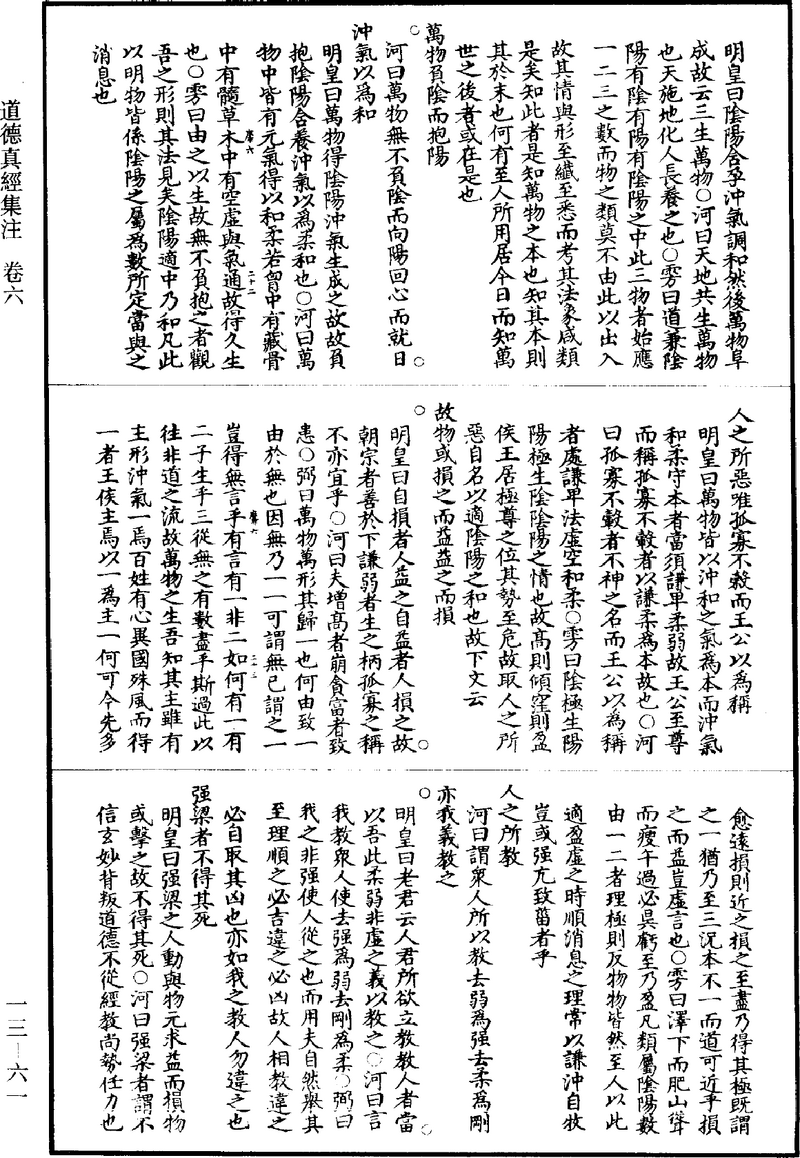 道德真經集注　卷六
一三—六一
明皇曰陰陽含孕沖氣調和然後萬物阜
成故云三生萬物○河曰天地共生萬物
也天施地化人長養之也○雱曰道兼陰
陽有陰有陽有陰陽之中此三物者始應
一二三之數而物之類莫不由此以出入
故其情與形至纖至悉而考其法象咸類
是矣知此者是知萬物之本也知其本則
其於末也何有至人所用居今日而知萬
世之後者或在是也
萬物負陰而抱陽
河曰萬物無不負陰而向陽回心而就日
沖氣以為和
明皇曰萬物得陰陽沖氣生成之故故負
抱陰陽含養沖氣以為柔和也○河曰萬
物中皆有元氣得以和柔若胷中有藏骨
中有髓草木中有空虛與氣通故得久生
也○雱曰由之以生故無不負抱之者觀
吾之形則其法見矣陰陽適中乃和凡此
以明物皆係陰陽之屬為數所定當與之
消息也
人之所惡唯孤寡不穀而王公以為稱
明皇曰萬物皆以沖和之氣為本而沖氣
和柔守本者當須謙卑柔弱故王公至尊
而稱孤寡不轂者以謙柔為本故也○河
曰孤寡不轂者不神之名而王公以為稱
者處謙卑法虛空和柔○雱曰陰極生陽
陽極生陰陰陽之情也故高則傾窪則盈
侯王居極尊之位其勢至危故取人之所
惡自名以適陰陽之和也故下文云
故物或損之而益益之而損
明皇曰自損者人益之自益者人損之故
朝宗者善於下謙弱者生之柄孤寡之稱
不亦宜乎○河曰夫增高者崩貪富者致
患○弼曰萬物萬形其歸一也何由致一
由於無也因無乃一一可謂無已謂之一
豈得無言乎有言有一非二如何有一有
二子生乎三從無之有數盡乎斯過此以
往非道之流故萬物之生吾知其主雖有
主形沖氣一焉百姓有心異國殊風而得
一者王侯主焉以一為主一何可令先多
愈遠損則近之損之至盡乃得其極既謂
之一猶乃至三況本不一而道可近乎損
之而益豈虛言也○雱曰澤下而肥山聳
而瘦午過必昃虧至乃盈凡類屬陰陽數
由一二者理極則反物物皆然至人以此
適盈虛之時順消息之理常以謙沖自牧
豈或强亢致菑者乎
人之所教
河曰謂衆人所以教去弱為强去柔為剛
亦我義教之
明皇曰老君云人君所欲立教教人者當
以吾此柔弱非虛之義以教之○河曰言
我教衆人使去强為弱去剛為柔○弼曰
我之非强使人從之也而用夫自然舉其
至理順之必吉違之必凶故人相教違之
必自取其凶也亦如我之教人勿違之也
强梁者不得其死
明皇曰强梁之人動與物亢求益而損物
或擊之故不得其死○河曰强梁者謂不
信玄妙背叛道德不從經教尚勢任力也